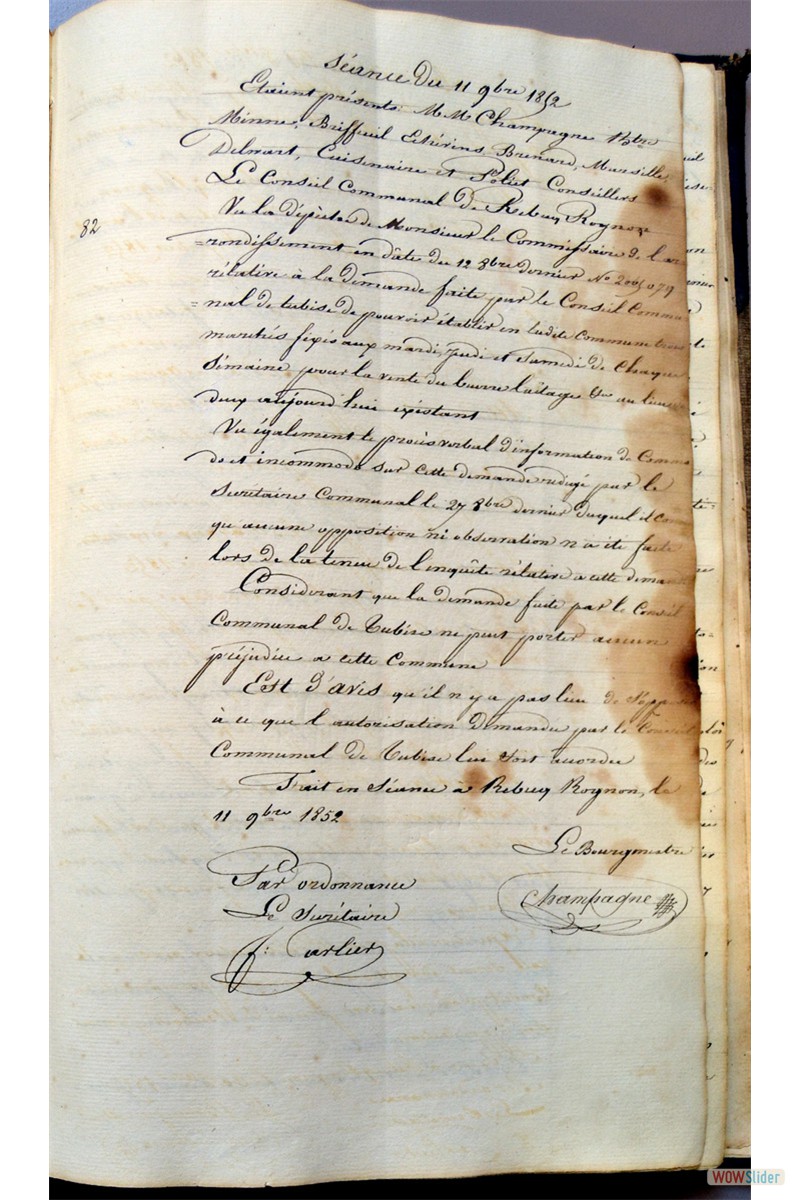 Séance du 11 9bre 1852
Etaient présents: M M Champagne Btre
Minne, Briffeuil Ectérins Brenard, Marsille,
Delwart, Cuisenaire et Poliet Conseillers
Le Conseil Communal de Rebecq Rognon
82
Vu la dépêche de Monsieur le Commissaire de l'ar
=rondissement en dâte du 12 8bre dernier No
rélative à la demande faite par le Conseil Commu
=nal de tubise de pouvoir établir en ladite Commune trois
marchés fixés aux mardi, jeudi et Samedi de Chaque
Sémaine pour la vente du beurre laitage &a au lieu de
deux aujourd'hui existant
Vu également le procès verbal d'information de Commo
do et incommodo sur cette demande rédigé par le
Secrétaire Communal le 27 8bre dernier duquel il
qu'aucune opposition ni observation n'a été faite
lors de la tenue de l'enquête rélative a cette demande
Considérant que la demande faite par le Conseil
Communal de Tubise ne peut porter aucun
préjudice a cette Commune
Est d'avis qu'il n'y a pas lieu de S'opposer
à ce que l'autorisation demandée par le Conseil
Communal de Tubise lui soit accordée
Fait en Séance à Rebecq Rognon, le
11 9bre 1852
Le Bourgmestre
Champagne
Par ordonnance
Le Secrétaire
f: Carlier
WOWSlider